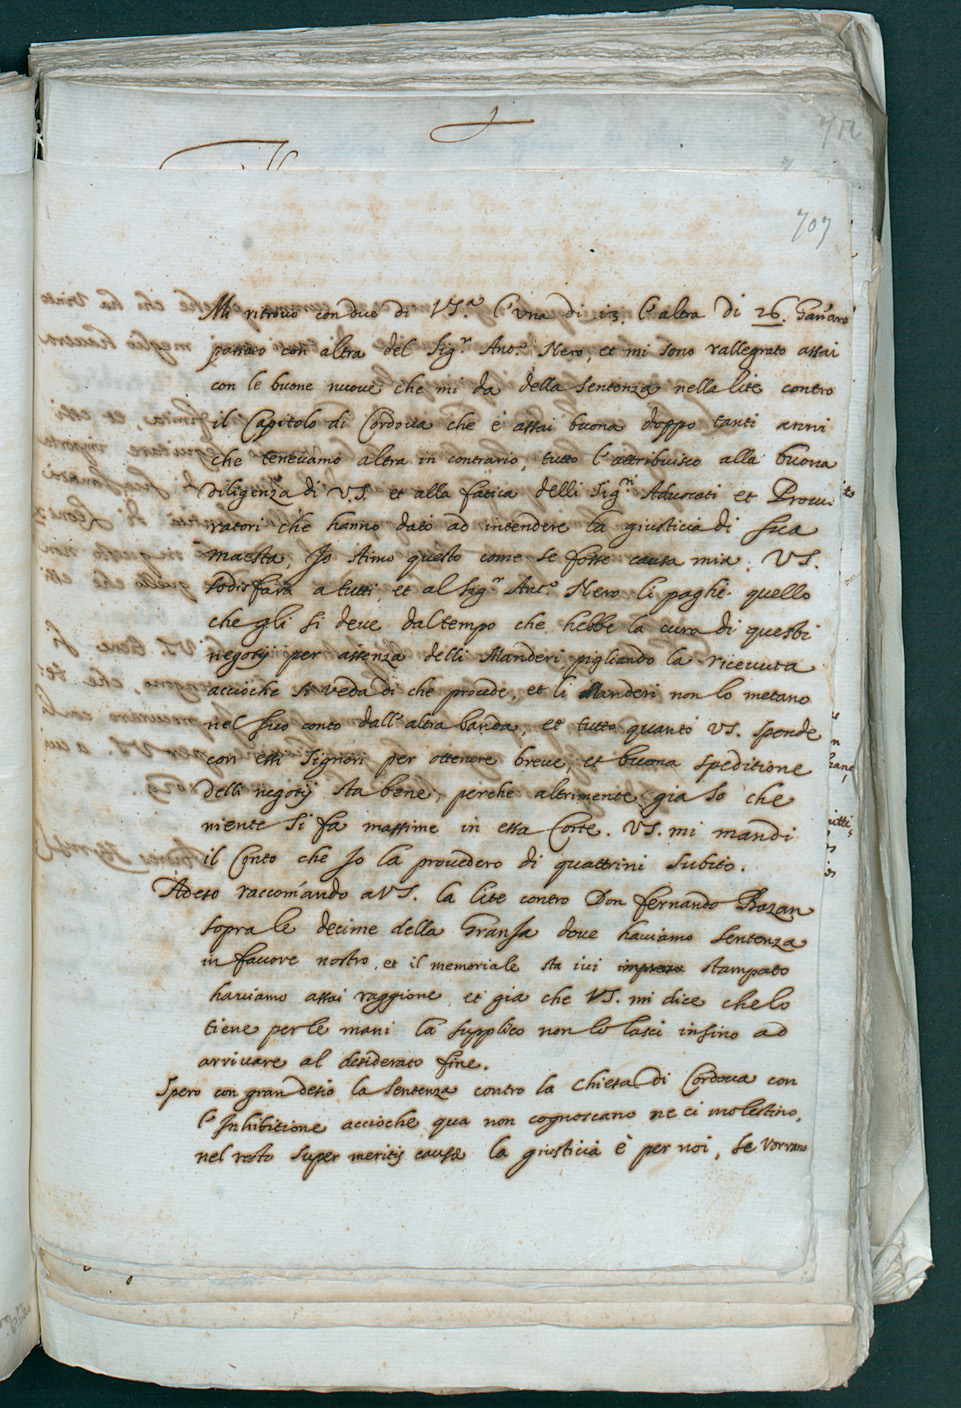 712
707
Mi ritrovo con due di VS.ª l'una di 13. l'altra di 26. Gen̄aro
passato con altra del Sig.r Ant.º Nero, et mi sono rallegrato assai
con le buone nuove che mi da della sentenza nella lite contro
il Capitolo di Cordova che è assai buona doppo tanti anni
che tenevamo altra in contrario, tutto l'attribuisco alla buona
diligenza di VS. et alla fatica delli Sig.ri Advocati et Procu
ratori che hanno dato ad intendere la giusticia di sua
maesta, Io stimo questo come se fosse causa mia; VS.
sodisfara a tutti, et al Sig.r Ant.º Nero li paghe quello
che gli si deve dal tempo che hebbe la cura di questi
negotij per assenza delli Manderi pigliando la ricevuta
accioche si veda di che procede, et li Manderi non lo metano
nel suo conto dall'altra banda, et tutto quanto VS. spende
con essi Signori per ottenere breve, et buona speditione
delli negotij sta bene, perche altrimente gia so che
niente si fa massime in essa Corte. VS. mi mandi
il Conto che Io la provedero di quattrini subito.
Adesso raccom̄ando a VS. la lite contro Don fernando Bazan
sopra le decime della Gransa dove haviamo sentenza
in favore nostro, et il memoriale sta ivi impreza stampato
haviamo assai raggione, et gia che VS. mi dice che lo
tiene per le mani la supplico non lo lasci insino ad
arrivare al desiderato fine.
Spero con gran desio la sentenza contro la Chiesa di Cordova con
l'Inhibitione accioche qua non cognoscano ne ci molestino,
nel resto super meritis causæ la giusticia è per noi, se vorrano